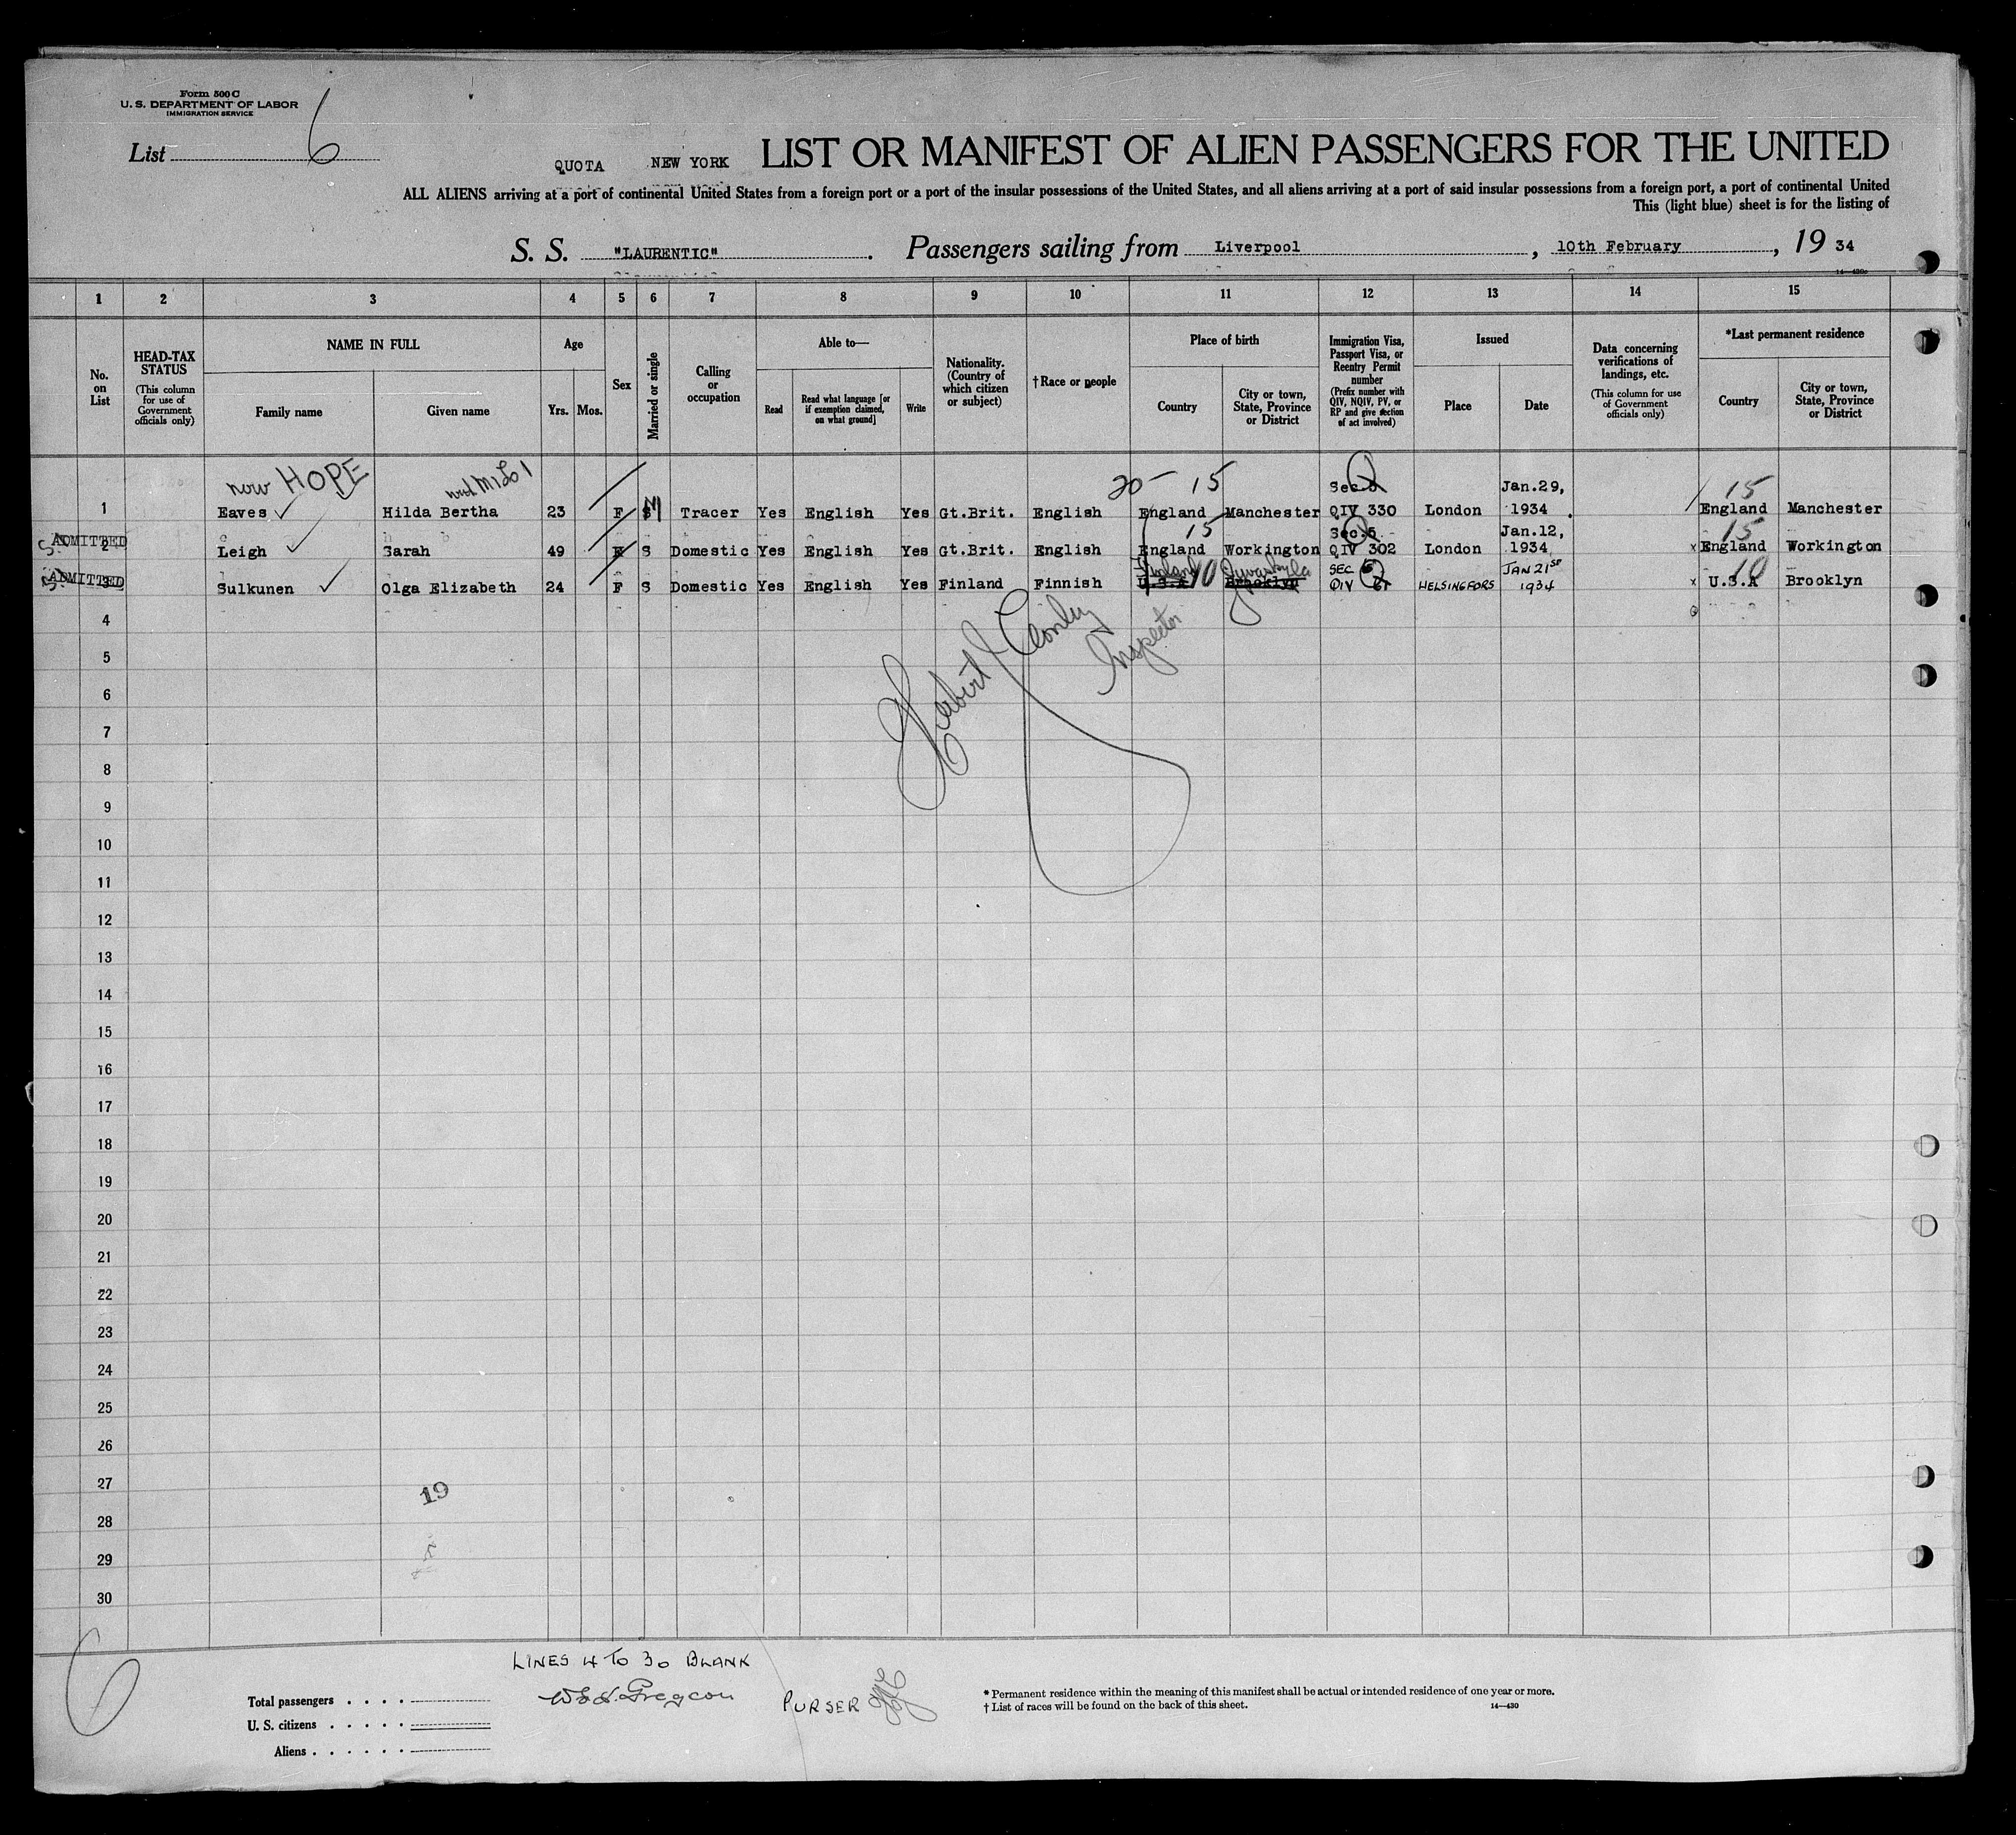 Form 500 C
U. S. DEPARTMENT OF LABOR
IMMIGRATION SERVICE
List 6
QUOTA NEW YORK LIST OR MANIFEST OF ALIEN PASSENGERS FOR THE UNITED
ALL ALIENS arriving at a port of continental United States from a foreign port or a port of the insular possessions of the United States, and all aliens arriving at a port of said insular possessions from a foreign port, a port of continental United
This (light blue) sheet is for the listing of
S. S. "LAURENTIC". Passengers sailing from Liverpool, 10th February, 19 34
14—430c
1 2 3 4 5 6 7 8 9 10 11 12 13 14 15
No. on List
HEAD-TAX STATUS (This column for use of Government officials only)
NAME IN FULL
Family name Given name
Age
Yrs. Mos.
Sex
Married or single
Calling or occupation
Able to—
Read
Read what language [or if exemption claimed, on what ground]
Write
Nationality. (Country of which citizen or subject)
†Race or people
Place of birth
Country
City or town, State, Province or District
Immigration Visa, Passport Visa, or Reentry Permit number (Prefix number with QIV, NQIV, PV, or RP and give section of act involved)
Issued
Place Date
Data concerning verifications of landings, etc. (This column for use of Government officials only)
*Last permanent residence
Country
City or town, State, Province or District
now HOPE
20 15 Sec. Jan.29, 15
1 Eaves Hilda Bertha 23 F M Tracer Yes English Yes Gt.Brit. English England Manchester QIV 330 London 1934 England Manchester
15 Sec.5 Jan.12, 15
ADMITTED 2 Leigh Sarah 49 F S Domestic Yes English Yes Gt.Brit. English England Workington QIV 302 London 1934 x England Workington
Finland 10 SEC 5 JAN 21ST 10
ADMITTED 3 Sulkunen Olga Elizabeth 24 F S Domestic Yes English Yes Finland Finnish U.S.A Brooklyn QIV HELSINGFORS 1934 x U.S.A Brooklyn
4
5
Inspector
6
7
8
9
10
11
12
13
14
15
16
17
18
19
20
21
22
23
24
25
26
27
19
28
29
30
6
LINES 4 TO 30 BLANK
Total passengers
PURSER
U. S. citizens
Aliens
* Permanent residence within the meaning of this manifest shall be actual or intended residence of one year or more.
† List of races will be found on the back of this sheet.
14—430